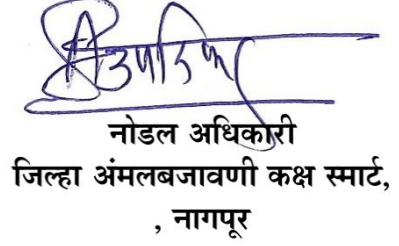 नोडल अधिकारी
जिल्हा अंमलबजावणी कक्ष स्मार्ट,
, नागपूर